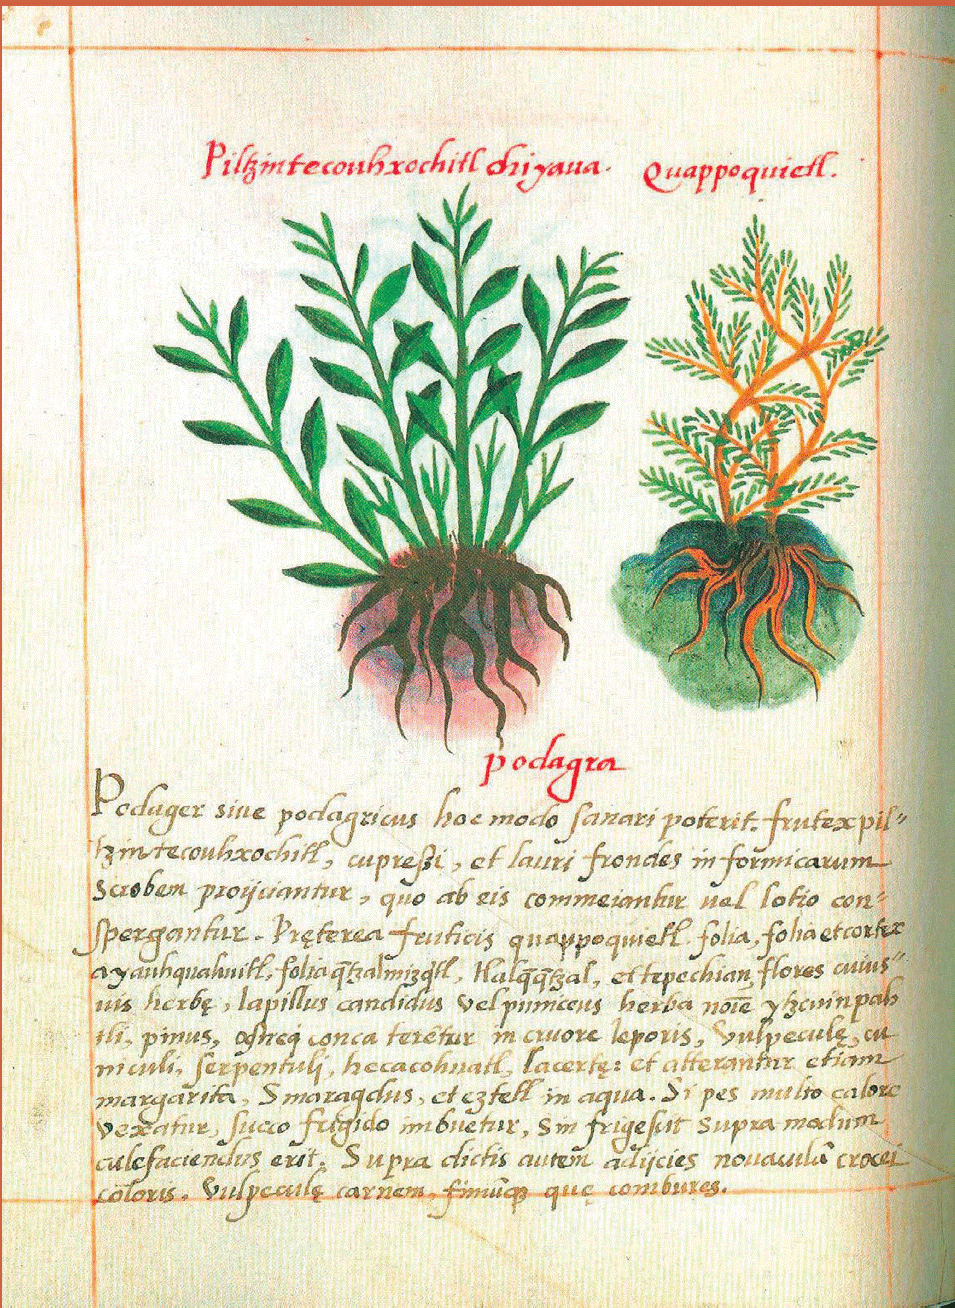 Piltzintecouhxochitl chiyava. Quappoquietl.
podagra
Podager sive podagricus hoc modo sanari poterit. frutex pil=
tzintecouhxochitl, cupressi, et lauri frondes in formicarum
Scrobem proijciantur, quo ab eis commeiantur vel lotio con=
spergantur. Pręterea fruticis quappoquietl folia, folia et cortex
ayauhquahuitl, folia q̃tzalmizq̃tl, tlalq̃q̃tzal, et tepechian, flores cuius=
vis herbę, lapillus candidus vel puniceus herba noīe ytzcuinpah
tli, pinus, ostreę conca teretur in cruore leporis, Vulpeculę, cu
niculi, serpentuli, hecacohuatl, lacertę: et atterantur etiam
margarita, Smaragdus, et eztetl in aqua. Si pes multo calore
vexatur, succo frigido imbuetur, Sin frigescit supra modum
calefaciendus erit. Supra dictis autem adijcies novaculā crocei
coloris, Vulpeculę carnem, fimūq̃ quę combures.